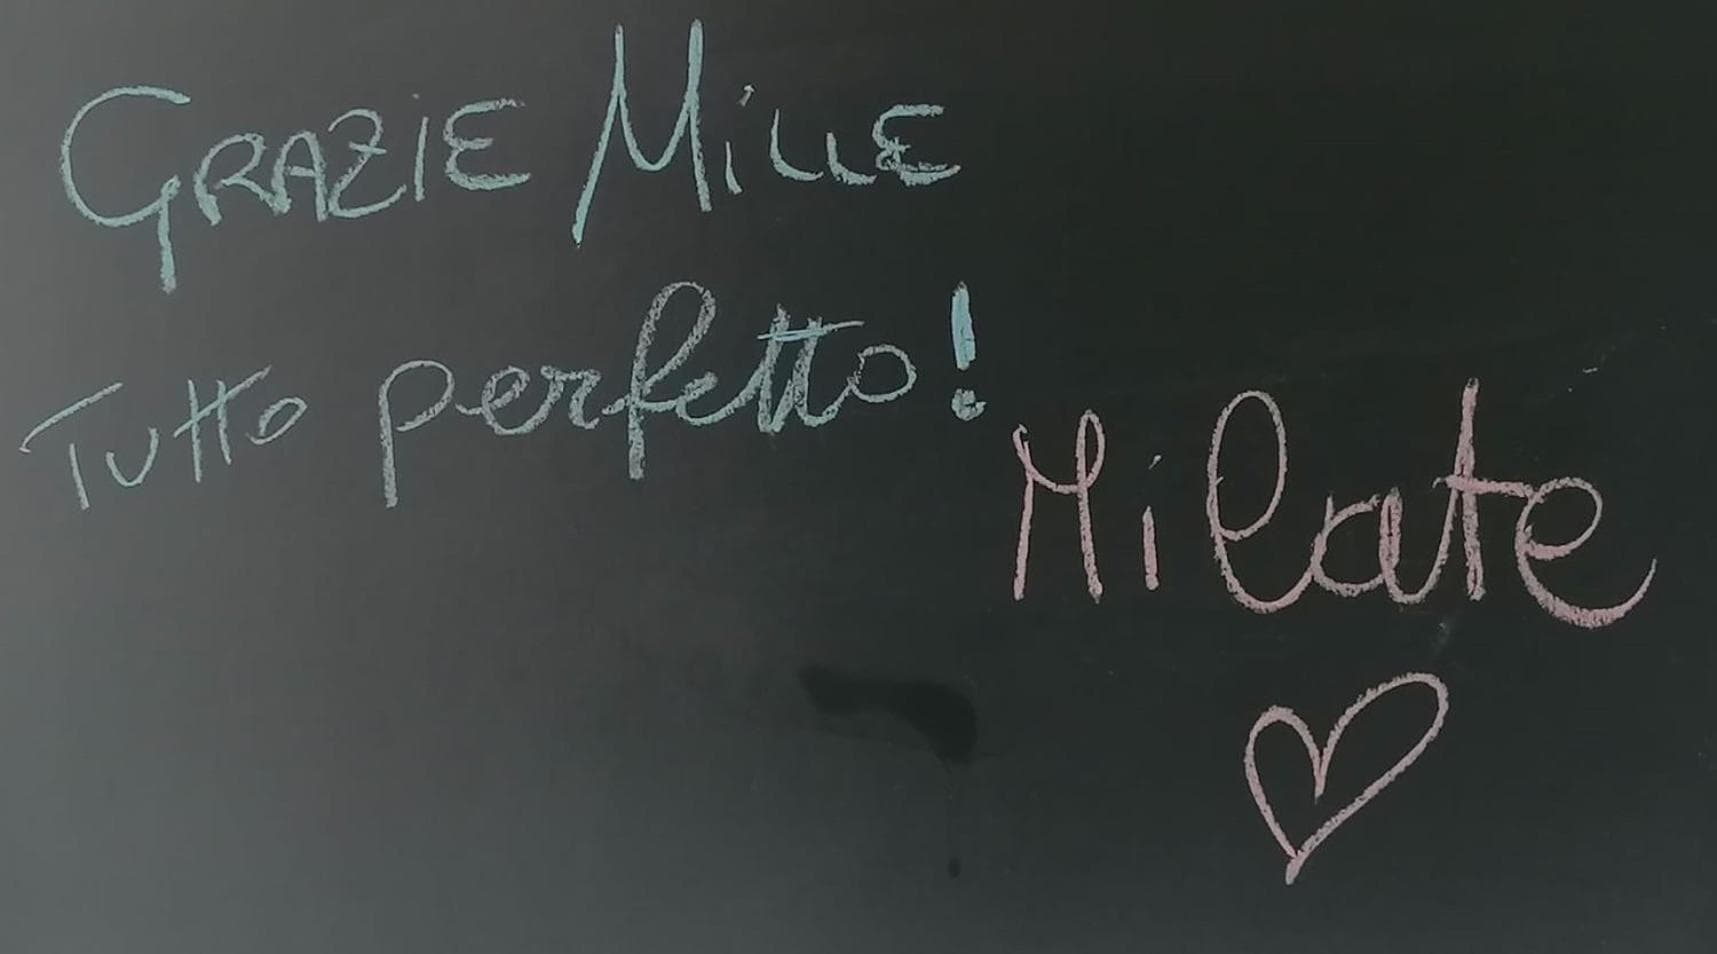 GRAZIE MiLLE
Tutto perfetto!
Milate